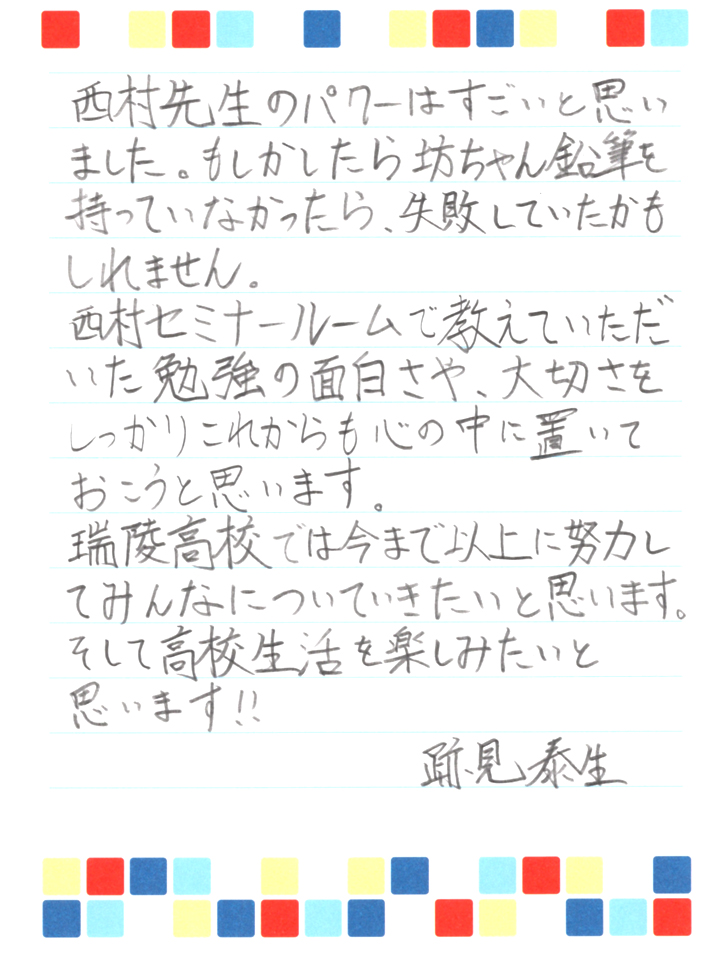 西村先生のパワーはすごいと思い
ました。もしかしたら坊ちゃん鉛筆を
持っていなかったら、失敗していたかも
しれません。
西村セミナールームで教えていただ
いた勉強の面白さや、大切さを
しっかりこれからも心の中に置いて
おこうと思います。
瑞陵高校では今まで以上に努力し
てみんなについていきたいと思います。
そして高校生活を楽しみたいと
思います!!
跡見泰生